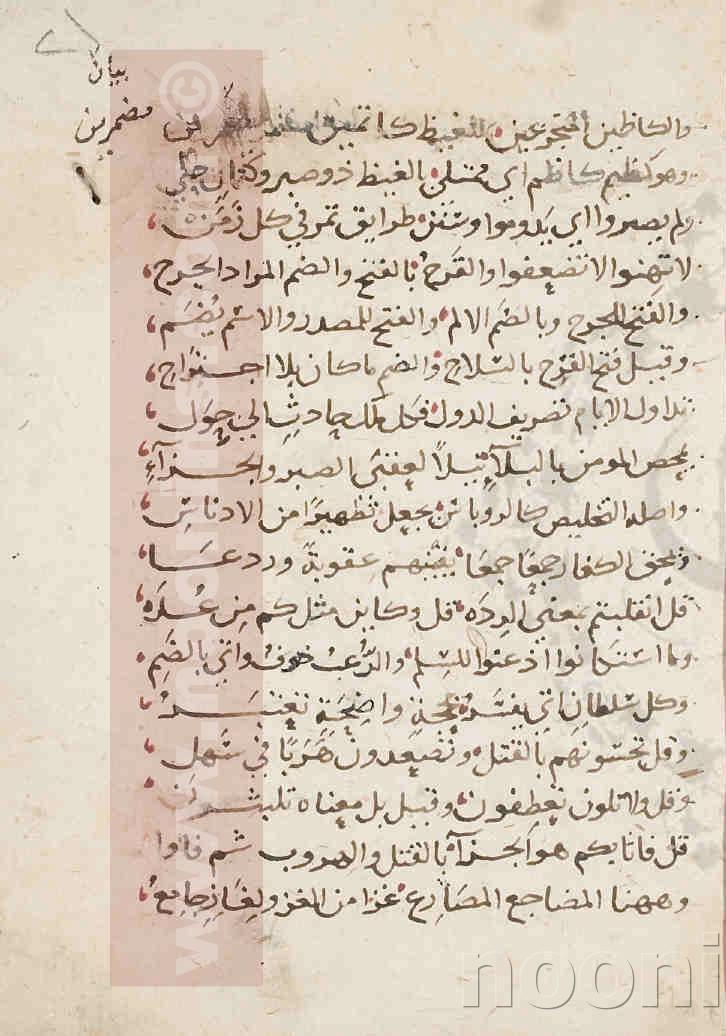 بيان
مضمرين
والكاظمين المتجرعين للغيظ كاتمين
وهو كظيم كاظم اي ممتلئ بالغيظ ذو صبر وكتمان جلي
ولم يصروا اي يدوموا وسنن طرايق تمر في كل زمن
لا تهنوا لا تضعفوا والقرح بالفتح والضم المراد الجرح
والفتح للجرح وبالضم الالم والفتح للمصدر والاسم يضم
وقيل فتح القرح بالسلاح والضم ما كان بلا اجتراح
تداول الايام تصريف الدول فكل ملك حادث الي حول
يمحص المومن بالبلاء تبلا لعقبي الصبر والجزاء
واصله التخليص كالذوبان يجعل تطهيرا من الادناس
ويمحق الكفار جمعا جمعا يفنيهم عقوبة وردعا
قل انقلبتم بمعني الرده قل وكاين مثل كم من عده
وما استكانوا اذعنوا للسلم والرعب خوف واتي بالضم
وكل سلطان اتي يفسر بحجة واضحة تعتبر
وقل تحسونهم بالقتل وتصعدون هربا في سهل
وقل ولا تلون تعطفون وقيل بل معناه تلبثون
قل فاثابكم هو الجزاء بالقتل والهروب ثم فاوا
وههنا المضاجع المصارع غزا من الغزو لغاز جامع
nooni